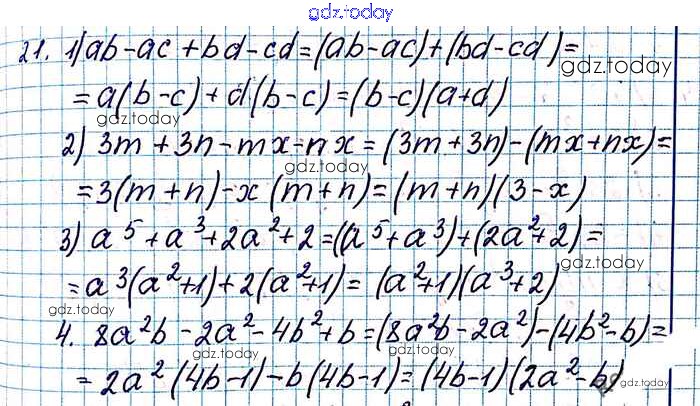 gdz.today
21. 1) ab-ac+bd-cd=(ab-ac)+(bd-cd)=
gdz.today
=a(b-c)+d(b-c)=(b-c)(a+d)
gdz.today
2) 3m+3n-mx-nx=(3m+3n)-(mx+nx)=
gdz.today
=3(m+n)-x(m+n)=(m+n)(3-x)
3) a⁵+a³+2a²+2=((a⁵+a³)+(2a²+2)=
gdz.today
=a³(a²+1)+2(a²+1)=(a²+1)(a³+2)
gdz.today
4. 8a²b-2a²-4b²+b=(8a²b-2a²)-(4b²-b)=
gdz.today gdz.today
=2a²(4b-1)-b(4b-1)=(4b-1)(2a²-b)
gdz.today